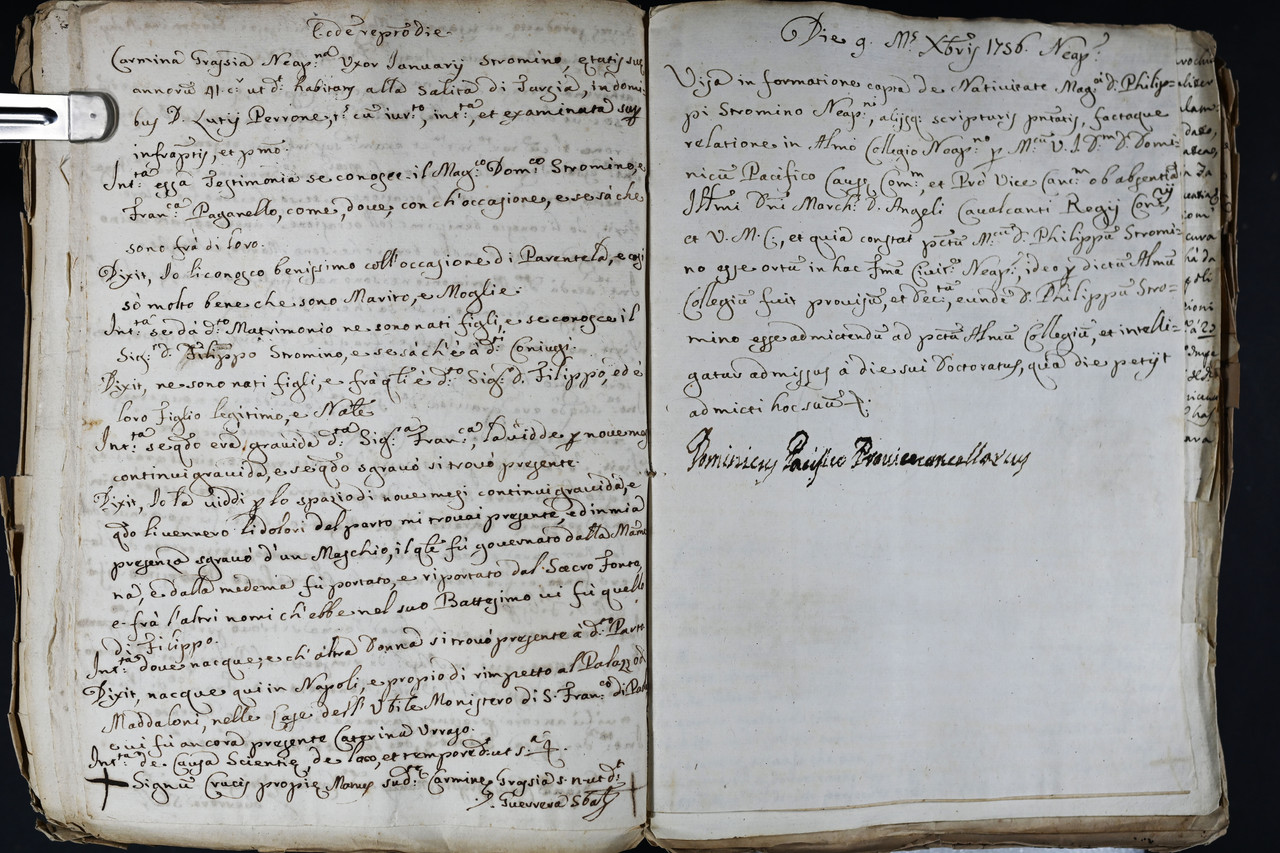 Eodem repto die
Carmina Grassia Neap:na Uxor Januarij Stromino, etatis sue
annorũ 41. c: ut d:t habitans alla Salita di Tarsia, in domi=
bus D. Lutij Perrone, t:s cũ iur:to, int:ta, et examinata sup
infraptis, et p̃mo.
Int:ta essa Testimonia se conosce il Mag:co Dom:co Stromino, e
Fran:ca Paganello, come, dove, con ch'occasione, e se sà che
sono frà di loro.
Dixit, Io li conosco benissimo coll'occasione di Parentela, e così
sò molto bene che sono Marito, e Moglie.
Int:ta se da d:to Matrimonio ne sono nati figli, e se conosce il
Sig:r D. Filippo Stromino, e se sà ch'è à d:ti Coniugi.
Dixit, ne sono nati figli, e frà q̃li è d:to Sig:r D. Filippo, ed è
loro figlio legitimo, e Nãle
Int:ta se q̃do era gravida d:ta Sig:a Fran:ca, la vidde p nove mesi
continui gravida, e se q̃do sgravò si trovò presente.
Dixit, Io la viddi p lo spazio di nove mesi continui gravida, e
q̃do li vennero li dolori del parto mi trovai presente, ed in mia
presenza sgravò d'un Maschio, il q̃le fù governato dalla Mam̃a
na, e dalla medema fù portato, e riportato dal Sacro Fonte,
e frà l'altri nomi ch'ebbe nel suo Battesimo vi fù quello
di Filippo.
Int:ta dove nacque, e ch'altra Donna si trovò presente à d:to Parto
Dixit, nacque quì in Napoli, e propio di rimpetto al Palazzo di
Maddaloni, nelle Case dell' Ven:bile Monistero di S. Fran:co di Pao
e vi fù ancora presente Caterina Urraso.
Int:ta de Causa Scientie, de loco, et tempore d: ut s:a
Signũ Crucis propie Manus sud:e Carmine Grassia s. n. ut d:t
Guerrera Sba
Die 9. M:s Xbris 1756. Neap:
Visa informatione capta de Nativitate Mag:ci D. Philip=
pi Stromino Neap:ni, alijsq; scripturis p̃ntatis, factaque
relatione in Almo Collegio Neap:no p M:cũ U.I.D:m D. Domi=
nicũ Pacifico Caus: Com:m, et Prò Vice Canc:m ob absentiã
Ill̃mi Dñi March: D. Angeli Cavalcanti Regij Cons:rij
et V. M. C., et quia constat p̃ctũ M:cũ D. Philippũ Stromi=
no esse ortũ in hac F̃ma Civit:e Neap:, ideo p dictũ Almũ
Collegiũ fuit provisũ, et dec:tũ, eundẽ D. Philippũ Stro=
mino esse admictendũ ad p̃ctũ Almũ Collegiũ, et intelli=
gatur admissus à die sui Doctoratus, qua die petijt
admicti hoc suũ
Dominicus Pacifico Provicecancellarius